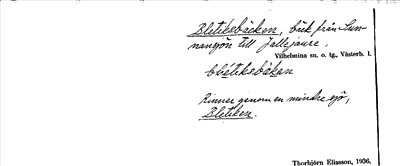 Bletiksbäcken, bäck från Lun-
nansjön till Jallejaure.
Vilhelmina sn. o. tg., Västerb. l.
Rinner genom en mindre sjö,
Bletiken.
Thorbjörn Eliasson, 1936.